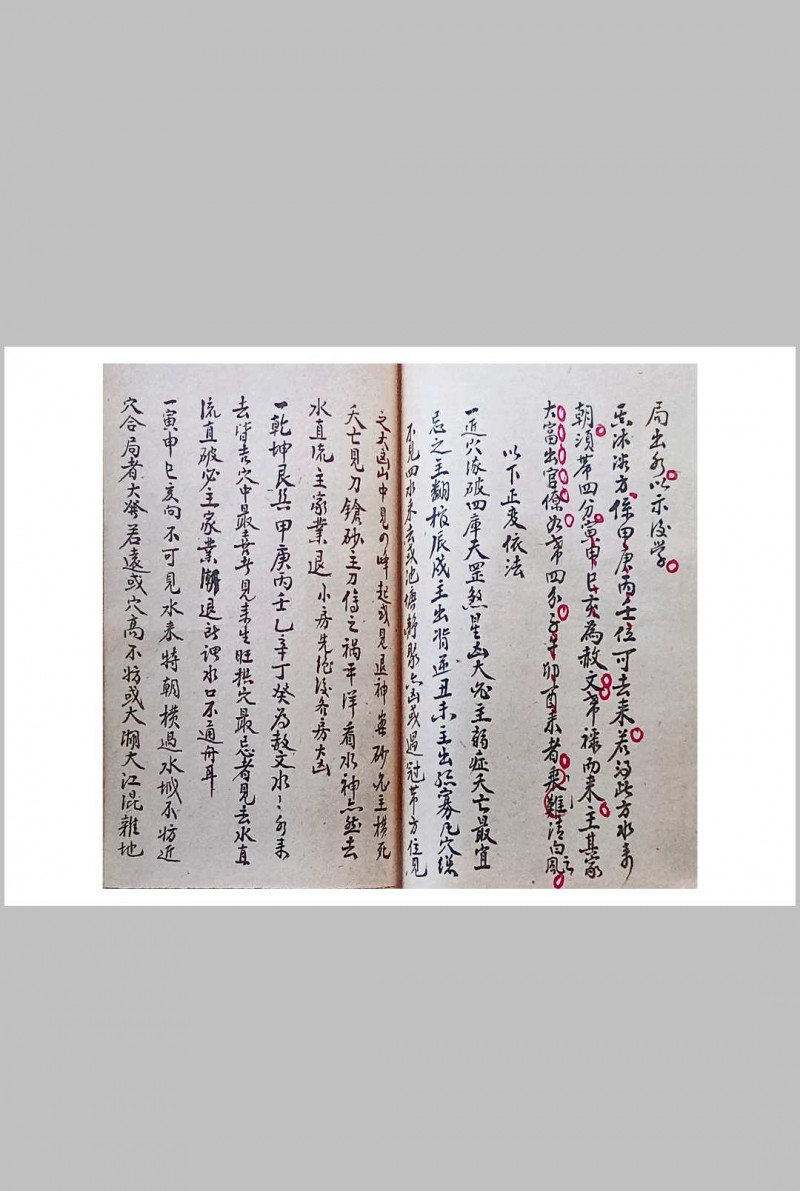 局出水以示后学
沐浴方係甲庚丙壬位可去来若汝此方水来
朝須带四分寅申巳亥為赦文带禄而来主其家
大富出官僚若带四分子午卯酉来者乘難清白之風
以下正变依法
一近穴涂破四庫天罡煞星凶大忌主弱症夭亡最宜
忌之主翻棺辰戌主出背逆丑未主出孤寡凡穴総
不見四水来去或池塘静聚亦凶或遇冠带方位見
之大凶山中見の峰起或見退神峦砂忌主横死
夭亡見刀鎗砂主刀傷之禍平洋看水神亦然去
水直流主家業退小房先絶後各房大凶
一乾坤艮巽甲庚丙壬乙辛丁癸為赦文水〻水来
去皆吉穴中最喜見来生旺拱穴最忌者見去水直
流直破必主家業漸退所謂水口不通舟耳
一寅申巳亥向不可見水来特朝横過水城不妨近
穴合局者大発若遠或穴高不妨或大湖大江混雜地